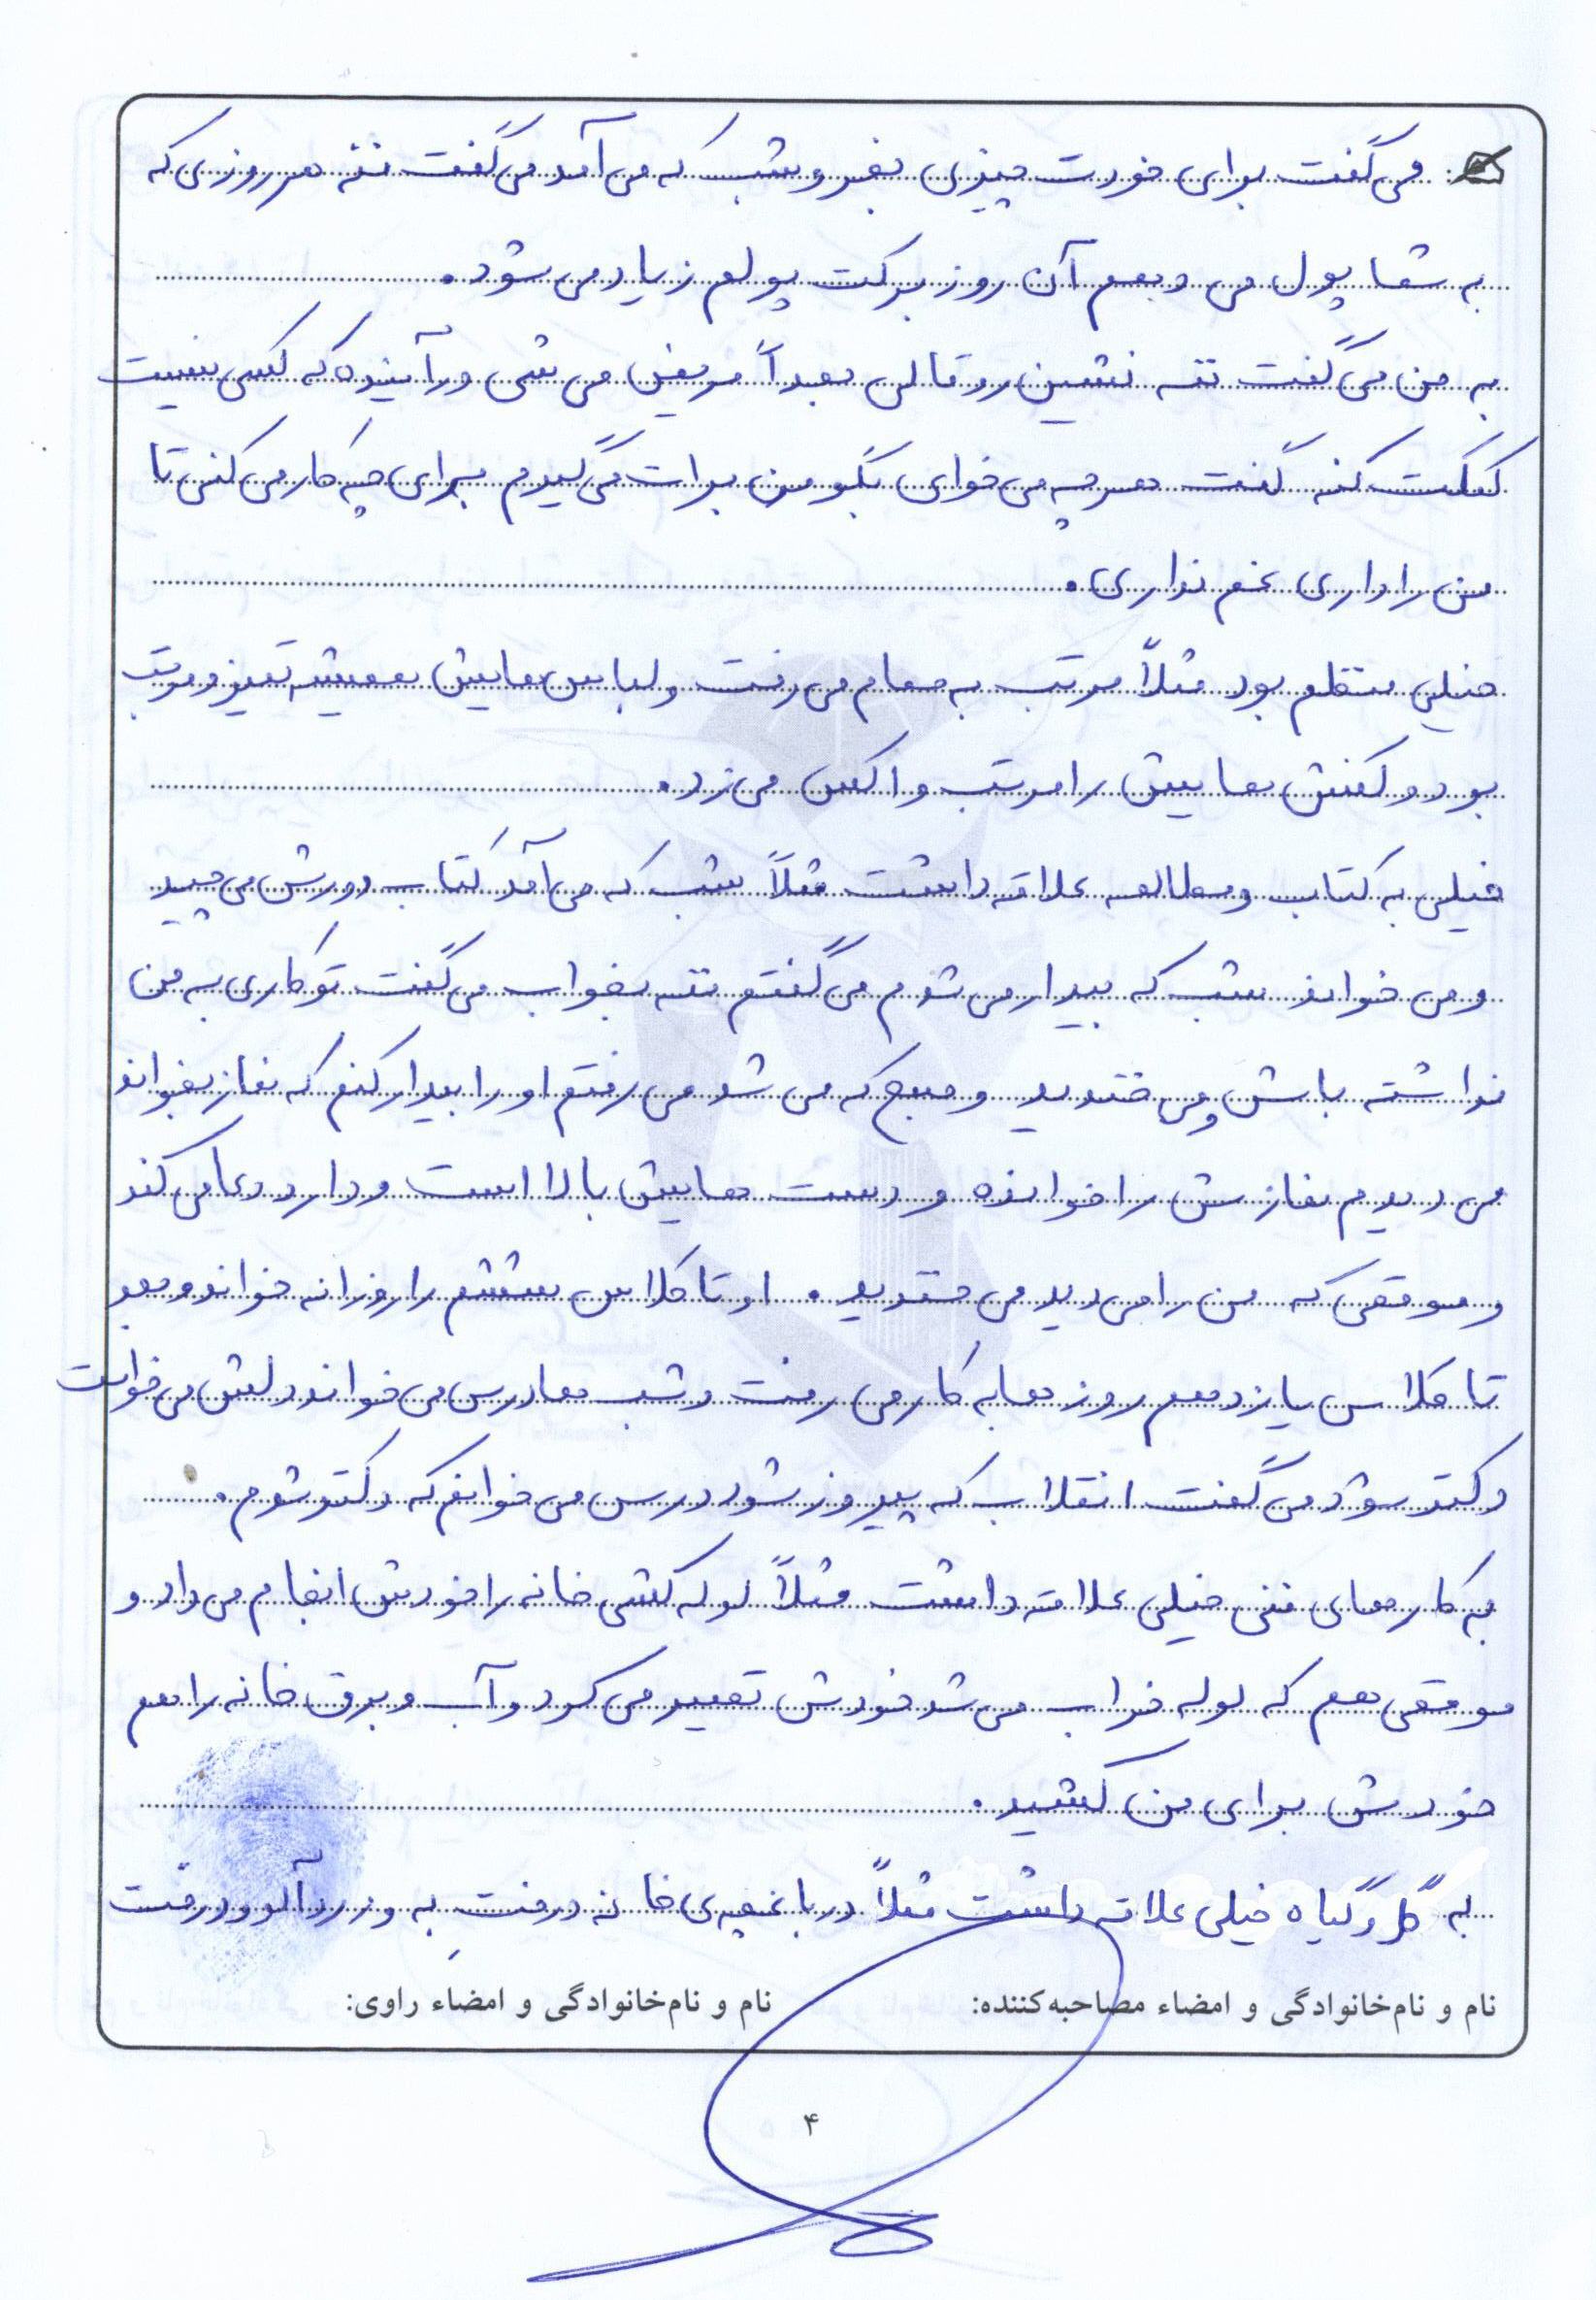 می گفت برای خودت چیزی بخر و شب که می آمد می گفت ننه هر روزی که
به شما پول می دهم آن روز برکت پولم زیاد می شود.
به من می گفت ننه نشین رو قالی بعداً مریض می شی و در آینده که کسی نیست
کمکت کنه گفت هر چه می خوای بگو من برات می گیرم برای چه کار می کنی تا
من را داری غم نداری.
خیلی منظم بود مثلاً مرتب به حمام می رفت و لباس هایش همیشه تمیز و مرتب
بود و کفش هایش را مرتب واکس می زد.
خیلی به کتاب و مطالعه علاقه داشت مثلاً شب که می آمد کتاب دورش می چید
و می خواند شب که بیدار می شدم می گفتم ننه بخواب می گفت تو کاری به من
نداشته باش و می خندید و صبح که می شد می رفتم او را بیدار کنم که نماز بخواند
می دیدم نمازش را خوانده و دست هایش بالا است و دارد دعا می کند
و موقعی که من را می دید می خندید. او تا کلاس ششم را روزانه خواند و بعد
تا کلاس یازدهم روز ها به کار می رفت و شب ها درس می خواند دلش می خواست
دکتر شود می گفت انقلاب که پیروز شود درس می خوانم که دکتر شوم.
به کارهای فنی خیلی علاقه داشت مثلاً لوله کشی خانه را خودش انجام می داد و
موقعی هم که لوله خراب می شد خودش تعمیر می کرد و آب و برق خانه را هم
خودش برای من کشید.
به گل و گیاه خیلی علاقه داشت مثلاً در باغچه ی خانه درخت به و زردآلو و درخت
نام و نام‌خانوادگی و امضاء مصاحبه‌کننده:
نام و نام‌خانوادگی و امضاء راوی:
۴